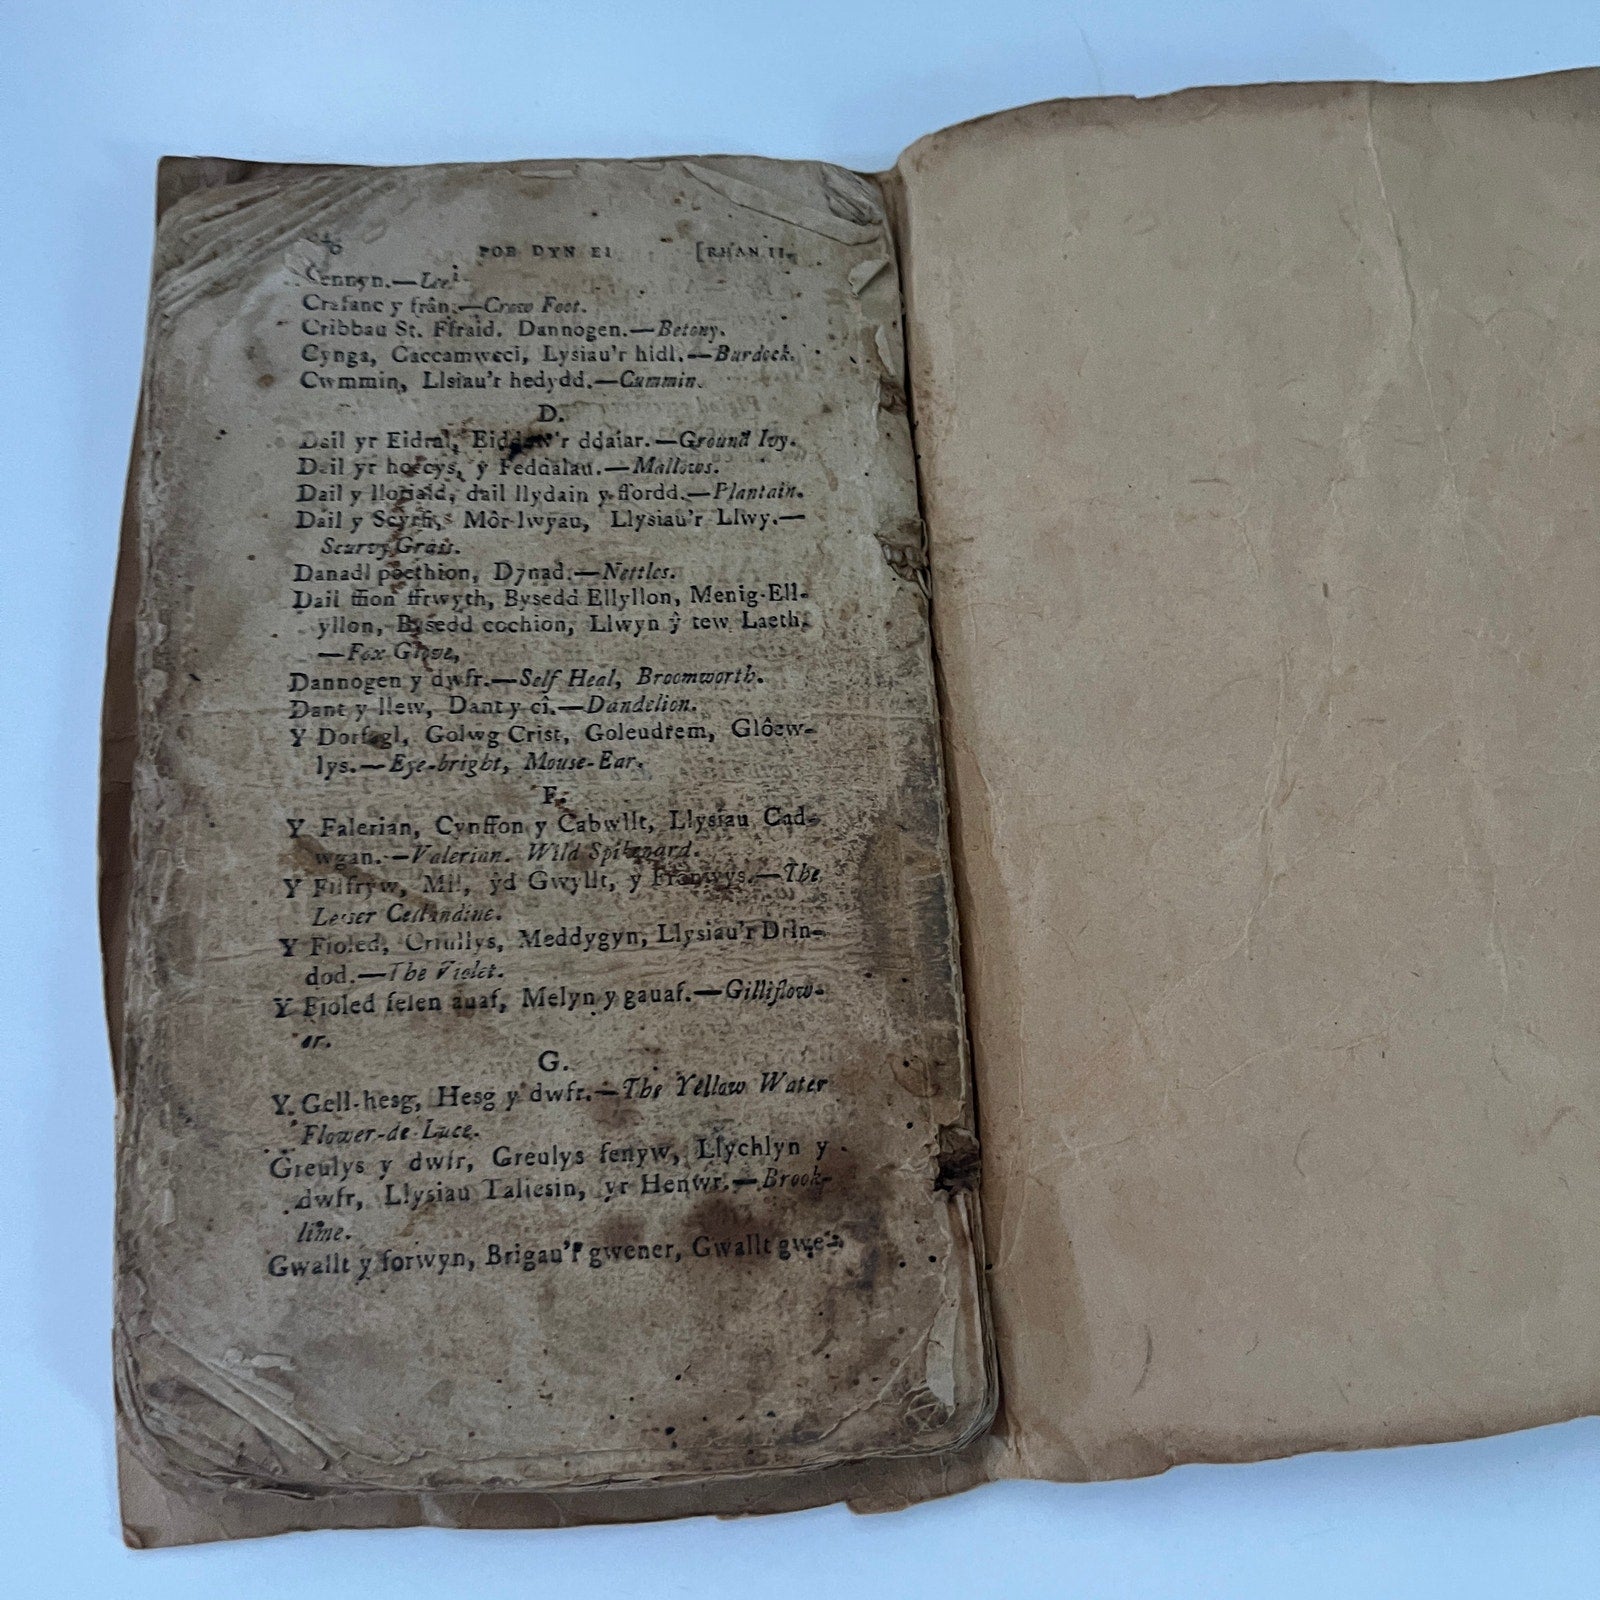 POB DYN EI [RHAN II.
Cennyn.—
Crafanc y frân.—Crow Foot.
Cribbau St. Ffraid. Dannogen.—Betony.
Cynga, Caccamwcci, Lysiau'r hidl.—Burdock.
Cwmmin, Llsiau'r hedydd.—Cummin.
D.
Dail yr Eidral, 'r ddaiar.—Ground Ivy.
Dail yr hoccys, y Feddalau.—Mallows.
Dail y dail llydain y ffordd.—Plantain.
Dail y Môr-lwyau, Llysiau'r Llwy.—
Scurvy Grass.
Danadl poethion, Dynad.—Nettles.
Dail ffion ffrwyth, Bysedd Ellyllon, Menig-Ell-
yllon, Bysedd cochion, Llwyn y tew Laeth.
—Fox Glove,
Dannogen y dwfr.—Self Heal, Broomworth.
Dant y llew, Dant y cî.—Dandelion.
Y Dorfagl, Golwg Crist, Goleudrem, Glôew-
lys.—Eye-bright, Mouse-Ear.
F.
Y Falerian, Cynffon y Cabwllt, Llysiau Cad-
wgan.—Valerian. Wild Spikenard.
Y Filfryw, Mil, ŷd Gwyllt, y —The
Lesser Cellandine.
Y Fioled, Criullys, Meddygyn, Llysiau'r Drin-
dod.—The Violet.
Y Fioled felen auaf, Melyn y gauaf.—Gilliflow-
er.
G.
Y Gell-hesg, Hesg y dwfr.—The Yellow Water
Flower-de-Luce.
Greulys y dwfr, Greulys fenyw, Llychlyn y
dwfr, Llysiau Taliesin, yr Henwr.—Brook-
lime.
Gwallt y forwyn, Brigau'r gwener, Gwallt gwe-